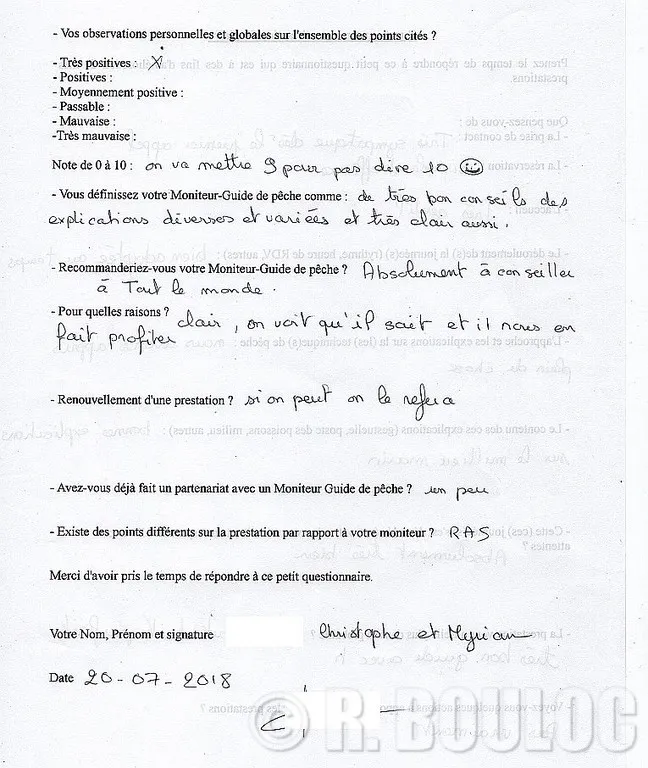 - Vos observations personnelles et globales sur l'ensemble des points cités ?
- Très positives : X
- Positives :
- Moyennement positive :
- Passable :
- Mauvaise :
-Très mauvaise :
Note de 0 à 10 : on va mettre 9 pour pas dire 10 ☺
- Vous définissez votre Moniteur-Guide de pêche comme : de très bon conseils des
explications diverses et variées et très clair aussi.
- Recommanderiez-vous votre Moniteur-Guide de pêche ? Absolument à conseiller
à Tout le monde.
- Pour quelles raisons ? clair, on voit qu'il sait et il nous en
fait profiter
- Renouvellement d'une prestation ? si on peut on le refera
- Avez-vous déjà fait un partenariat avec un Moniteur Guide de pêche ? un peu
- Existe des points différents sur la prestation par rapport à votre moniteur ? RAS
Merci d'avoir pris le temps de répondre à ce petit questionnaire.
Votre Nom, Prénom et signature Christophe et Myriam
Date 20-07-2018
© R. BOULOC